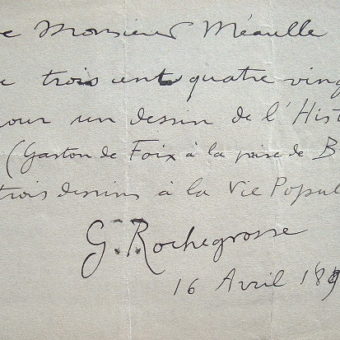 e Monsieur Méaulle
e trois cent quatre ving
our un dessin de l'Hist
(Gaston de Foix à la prise de B
trois dessins à la Vie Popul
G. Rochegrosse
16 Avril 189